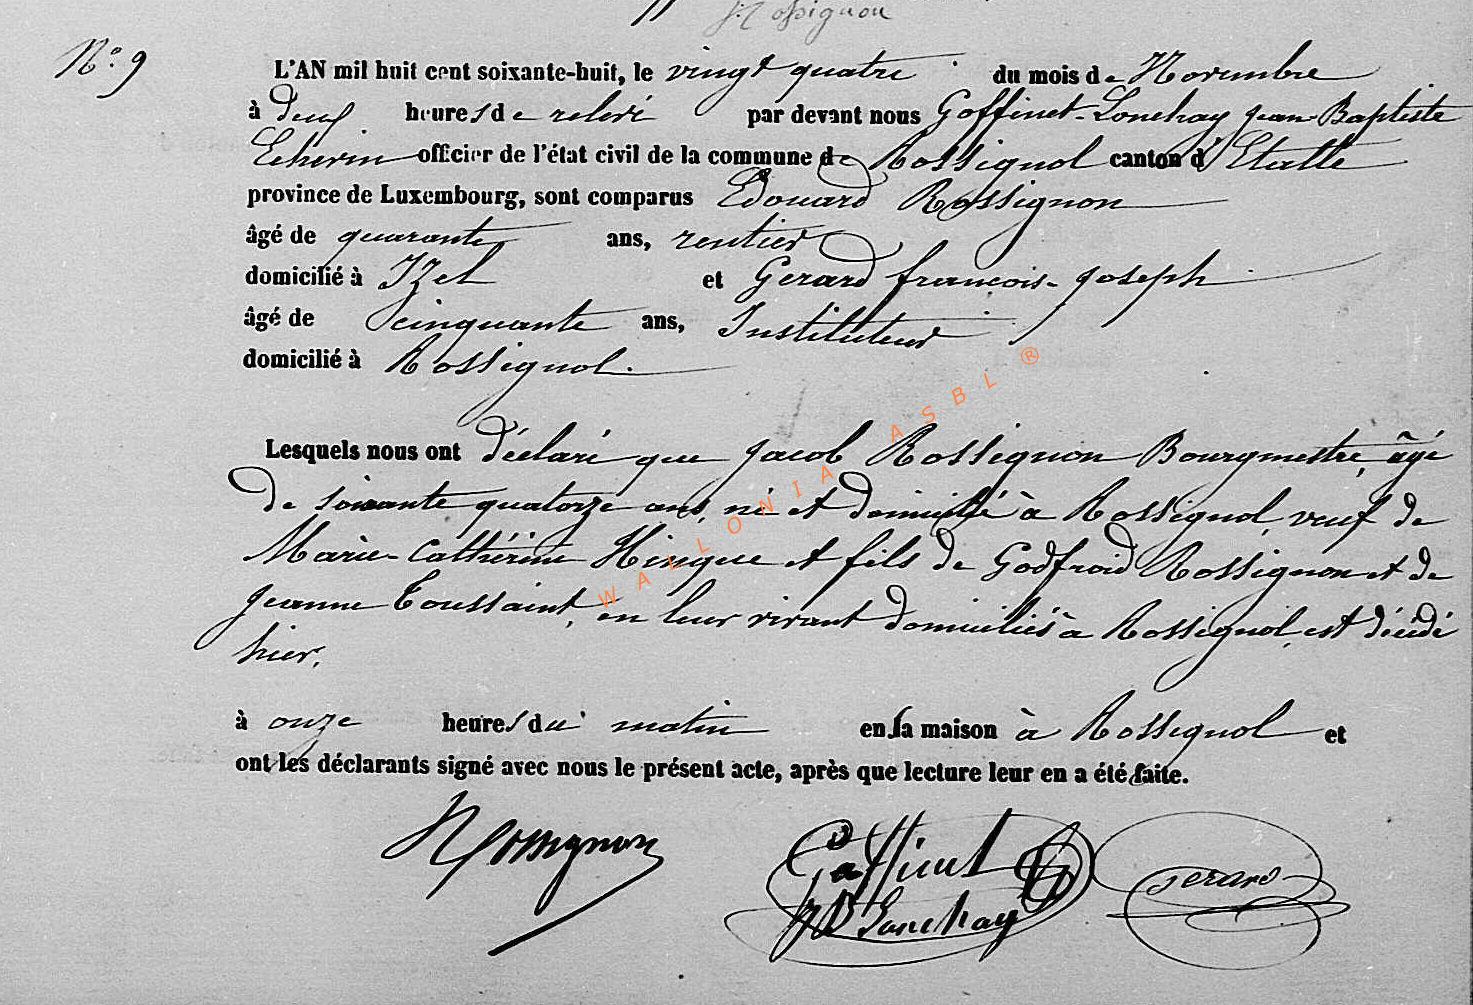 Rossignon
N.° 9
L'AN mil huit cent soixante-huit, le vingt quatre du mois de Novembre
à deux heures de relevé par devant nous Goffinet-Lonchay jean-Baptiste
Echevin officier de l'état civil de la commune de Rossignol canton d'Etalle
province de Luxembourg, sont comparus Edouard Rossignon
âgé de quarante ans, rentier
domicilié à Izel et Gerard francois-joseph
âgé de cinquante ans, Instituteur
domicilié à Rossignol.
Lesquels nous ont déclaré que jacob Rossignon Bourgmestre, âgé
de soixante quatorze ans, né et domicilié à Rossignol, veuf de
Marie-Cathérine Hinque et fils de Godfroid Rossignon et de
jeanne Toussaint, en leur vivant domiciliés à Rossignol, est décédé
hier,
à onze heures du matin en sa maison à Rossignol et
ont les déclarants signé avec nous le présent acte, après que lecture leur en a été faite.
Rossignon
Goffinet
JB Lonchay
Gerard
WALLONIA ASBL ®